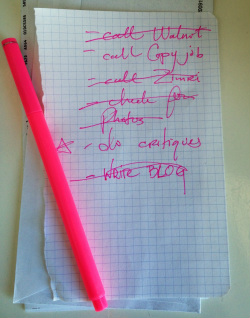 - call Walnut
- call Copy job
- call Zimri
- check for
Photos
☆ - do critiques
- WRITE BLOG